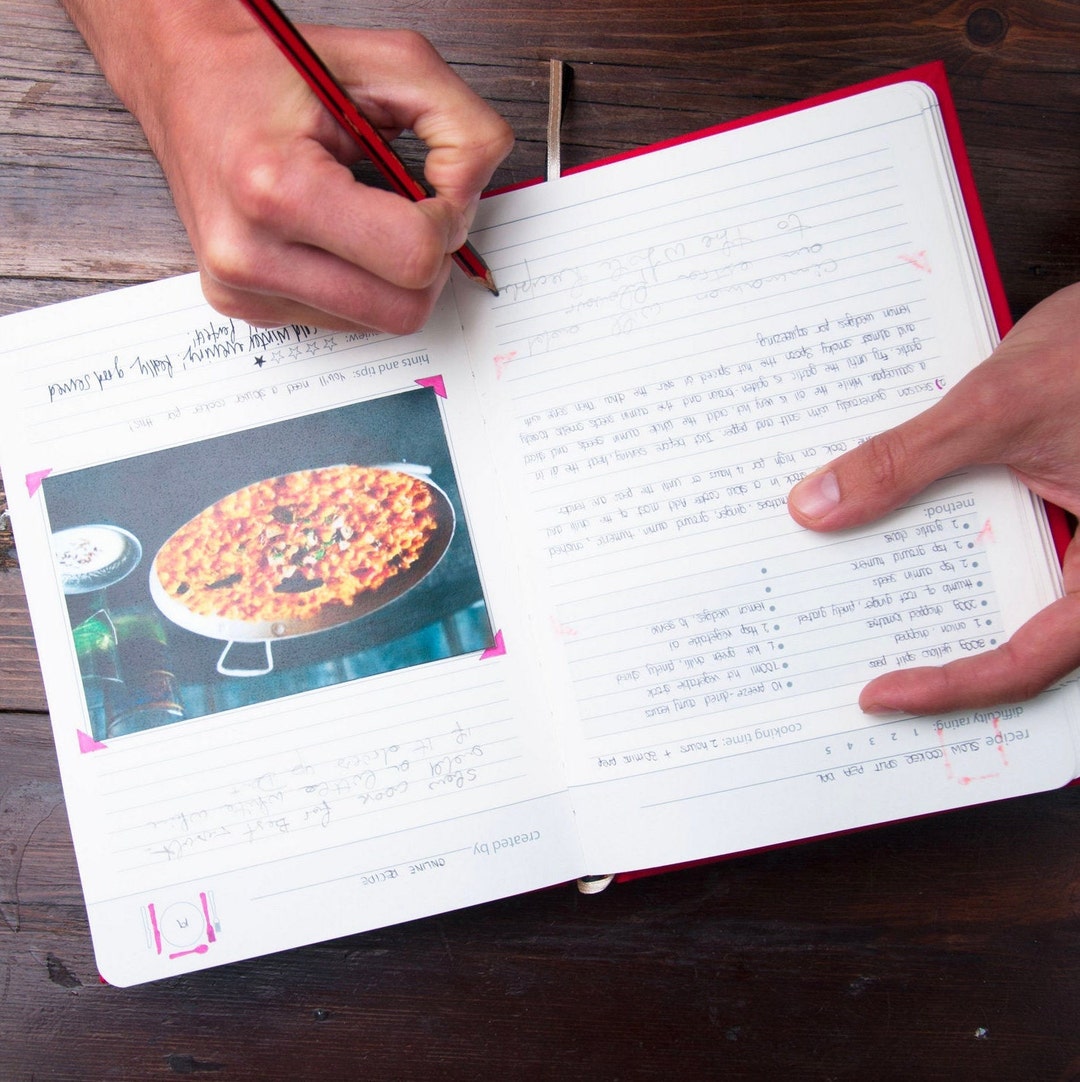 recipe SLOW COOKER SPLIT PEA DAL
difficulty rating: 1 2 3 4 5 cooking time: 2 hours + 20mins prep
300g yellow split peas
1 onion, chopped
200g chopped tomatoes
thumb of root ginger, finely grated
2 tsp cumin seeds
2 tsp ground turmeric
2 garlic cloves
10 freeze-dried curry leaves
700ml hot vegetable stock
1 hot green chilli, finely sliced
2 tbsp vegetable oil
lemon wedges to serve
method:
tomatoes, ginger, ground cumin turmeric, crushed
stock in a slow cooker and most of the chilli
cook on high for 4 hours or until the peas are tender
2) season generously with salt and pepper. Just before serving, heat the oil in
a saucepan while the oil is very hot add the whole cumin seeds and sliced
garlic fry until the garlic is golden brown and the cumin seeds smells toasty
and almost smoky. Spoon the hot speed oil over the dhal then serve with
lemon wedges for squeezing
add
cinnamon
and extra
to the whole Recipe
created by ONLINE RECIPE
19
Slow cook for Best result.
add a little white wine
if it dries up
hints and tips: You'll need a slower cooker for this!
Really good served
cold winter evening! Perfect!